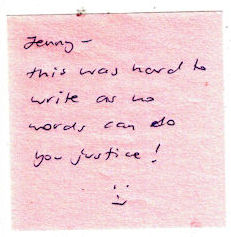 Jenny -
this was hard to
write as no
words can do
you justice!
:)